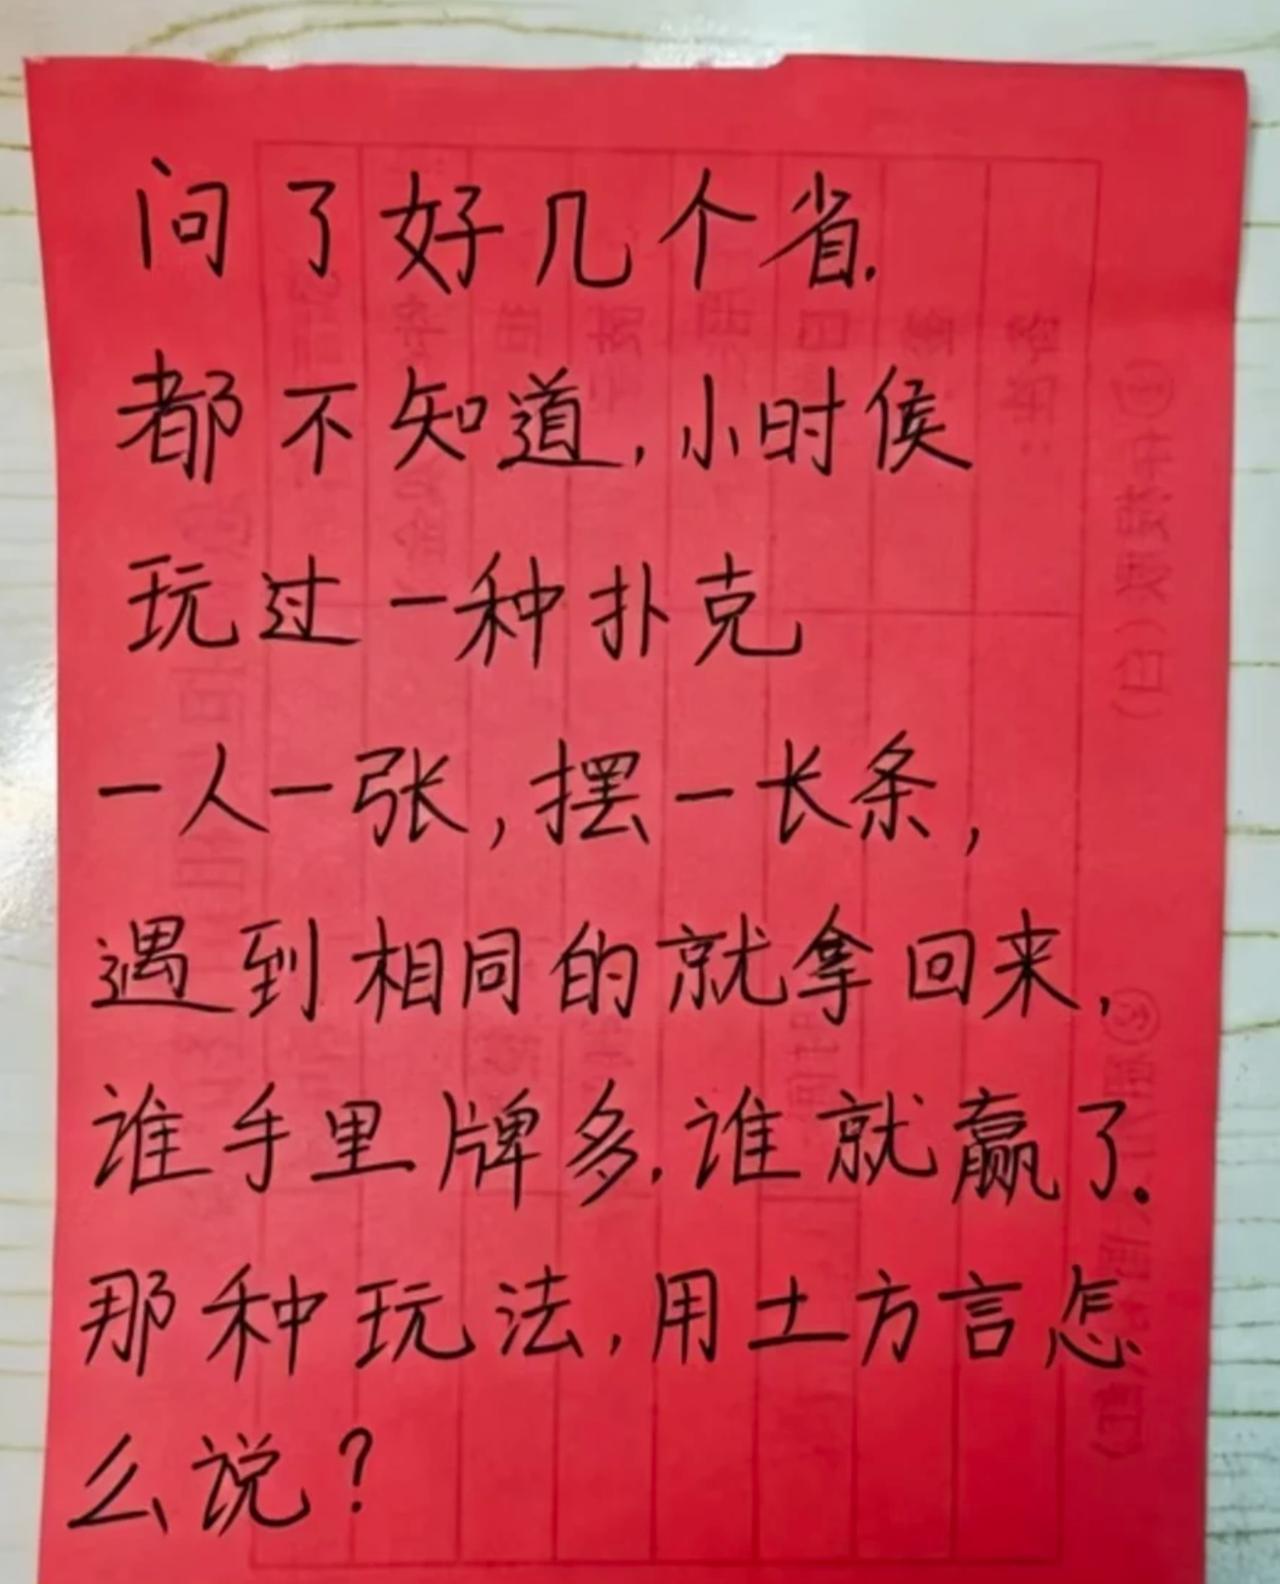 问了好几个省.
都不知道,小时候
玩过一种扑克
一人一张,摆一长条,
遇到相同的就拿回来,
谁手里牌多.谁就赢了.
那种玩法,用土方言怎
么说?